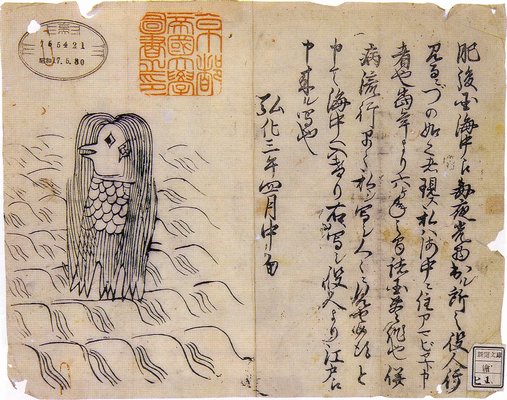 肥後国海中え毎夜光物出ル所之役人行
見るニづの如之者現ス私ハ海中ニ住アマビヱト申
者也当年より六ヶ年之間諸国豊作也併
病流行早々私ヲ写シ人々ニ見セ候得と
申て海中へ入けり右ハ写シ役人より江戸え
申来ル写也
弘化三年四月中旬
京都
帝國大學
圖書之印
165421
昭和17.6.30